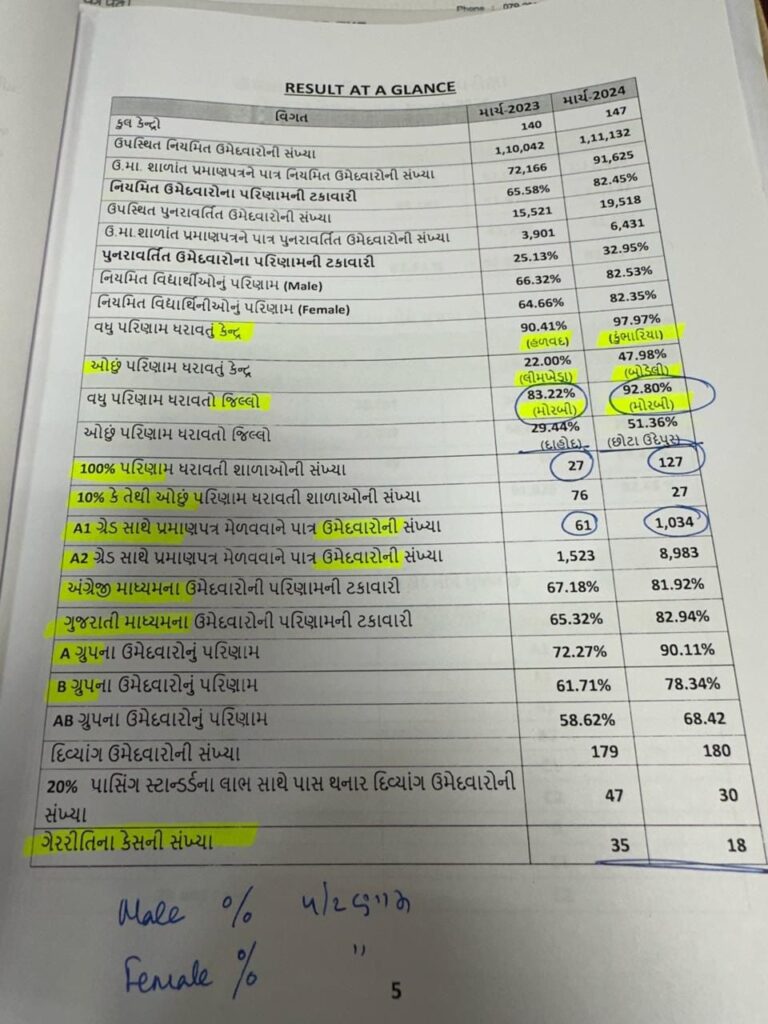 Phone :
RESULT AT A GLANCE
વિગત માર્ચ-2023 માર્ચ-2024
કુલ કેન્દ્રો 140 147
ઉપસ્થિત નિયમિત ઉમેદવારોની સંખ્યા 1,10,042 1,11,132
ઉ.મા. શાળાંત પ્રમાણપત્રને પાત્ર નિયમિત ઉમેદવારોની સંખ્યા 72,166 91,625
નિયમિત ઉમેદવારોના પરિણામની ટકાવારી 65.58% 82.45%
ઉપસ્થિત પુનરાવર્તિત ઉમેદવારોની સંખ્યા 15,521 19,518
ઉ.મા.શાળાંત પ્રમાણપત્રને પાત્ર પુનરાવર્તિત ઉમેદવારોની સંખ્યા 3,901 6,431
પુનરાવર્તિત ઉમેદવારોના પરિણામની ટકાવારી 25.13% 32.95%
નિયમિત વિદ્યાર્થીઓનું પરિણામ (Male) 66.32% 82.53%
નિયમિત વિદ્યાર્થિનીઓનું પરિણામ (Female) 64.66% 82.35%
વધુ પરિણામ ધરાવતું કેન્દ્ર 90.41% 97.97%
(હળવદ) (કુંભારિયા)
ઓછું પરિણામ ધરાવતું કેન્દ્ર 22.00% 47.98%
(લીમખેડા) (બોડેલી)
વધુ પરિણામ ધરાવતો જિલ્લો 83.22% 92.80%
(મોરબી) (મોરબી)
ઓછું પરિણામ ધરાવતો જિલ્લો 29.44% 51.36%
(દાહોદ) (છોટા ઉદેપુર)
100% પરિણામ ધરાવતી શાળાઓની સંખ્યા 27 127
10% કે તેથી ઓછું પરિણામ ધરાવતી શાળાઓની સંખ્યા 76 27
A1 ગ્રેડ સાથે પ્રમાણપત્ર મેળવવાને પાત્ર ઉમેદવારોની સંખ્યા 61 1,034
A2 ગ્રેડ સાથે પ્રમાણપત્ર મેળવવાને પાત્ર ઉમેદવારોની સંખ્યા 1,523 8,983
અંગ્રેજી માધ્યમના ઉમેદવારોની પરિણામની ટકાવારી 67.18% 81.92%
ગુજરાતી માધ્યમના ઉમેદવારોની પરિણામની ટકાવારી 65.32% 82.94%
A ગ્રુપના ઉમેદવારોનું પરિણામ 72.27% 90.11%
B ગ્રુપના ઉમેદવારોનું પરિણામ 61.71% 78.34%
AB ગ્રુપના ઉમેદવારોનું પરિણામ 58.62% 68.42
દિવ્યાંગ ઉમેદવારોની સંખ્યા 179 180
20% પાસિંગ સ્ટાન્ડર્ડના લાભ સાથે પાસ થનાર દિવ્યાંગ ઉમેદવારોની
સંખ્યા 47 30
ગેરરીતિના કેસની સંખ્યા 35 18
Male % પરિણામ
Female % "
5